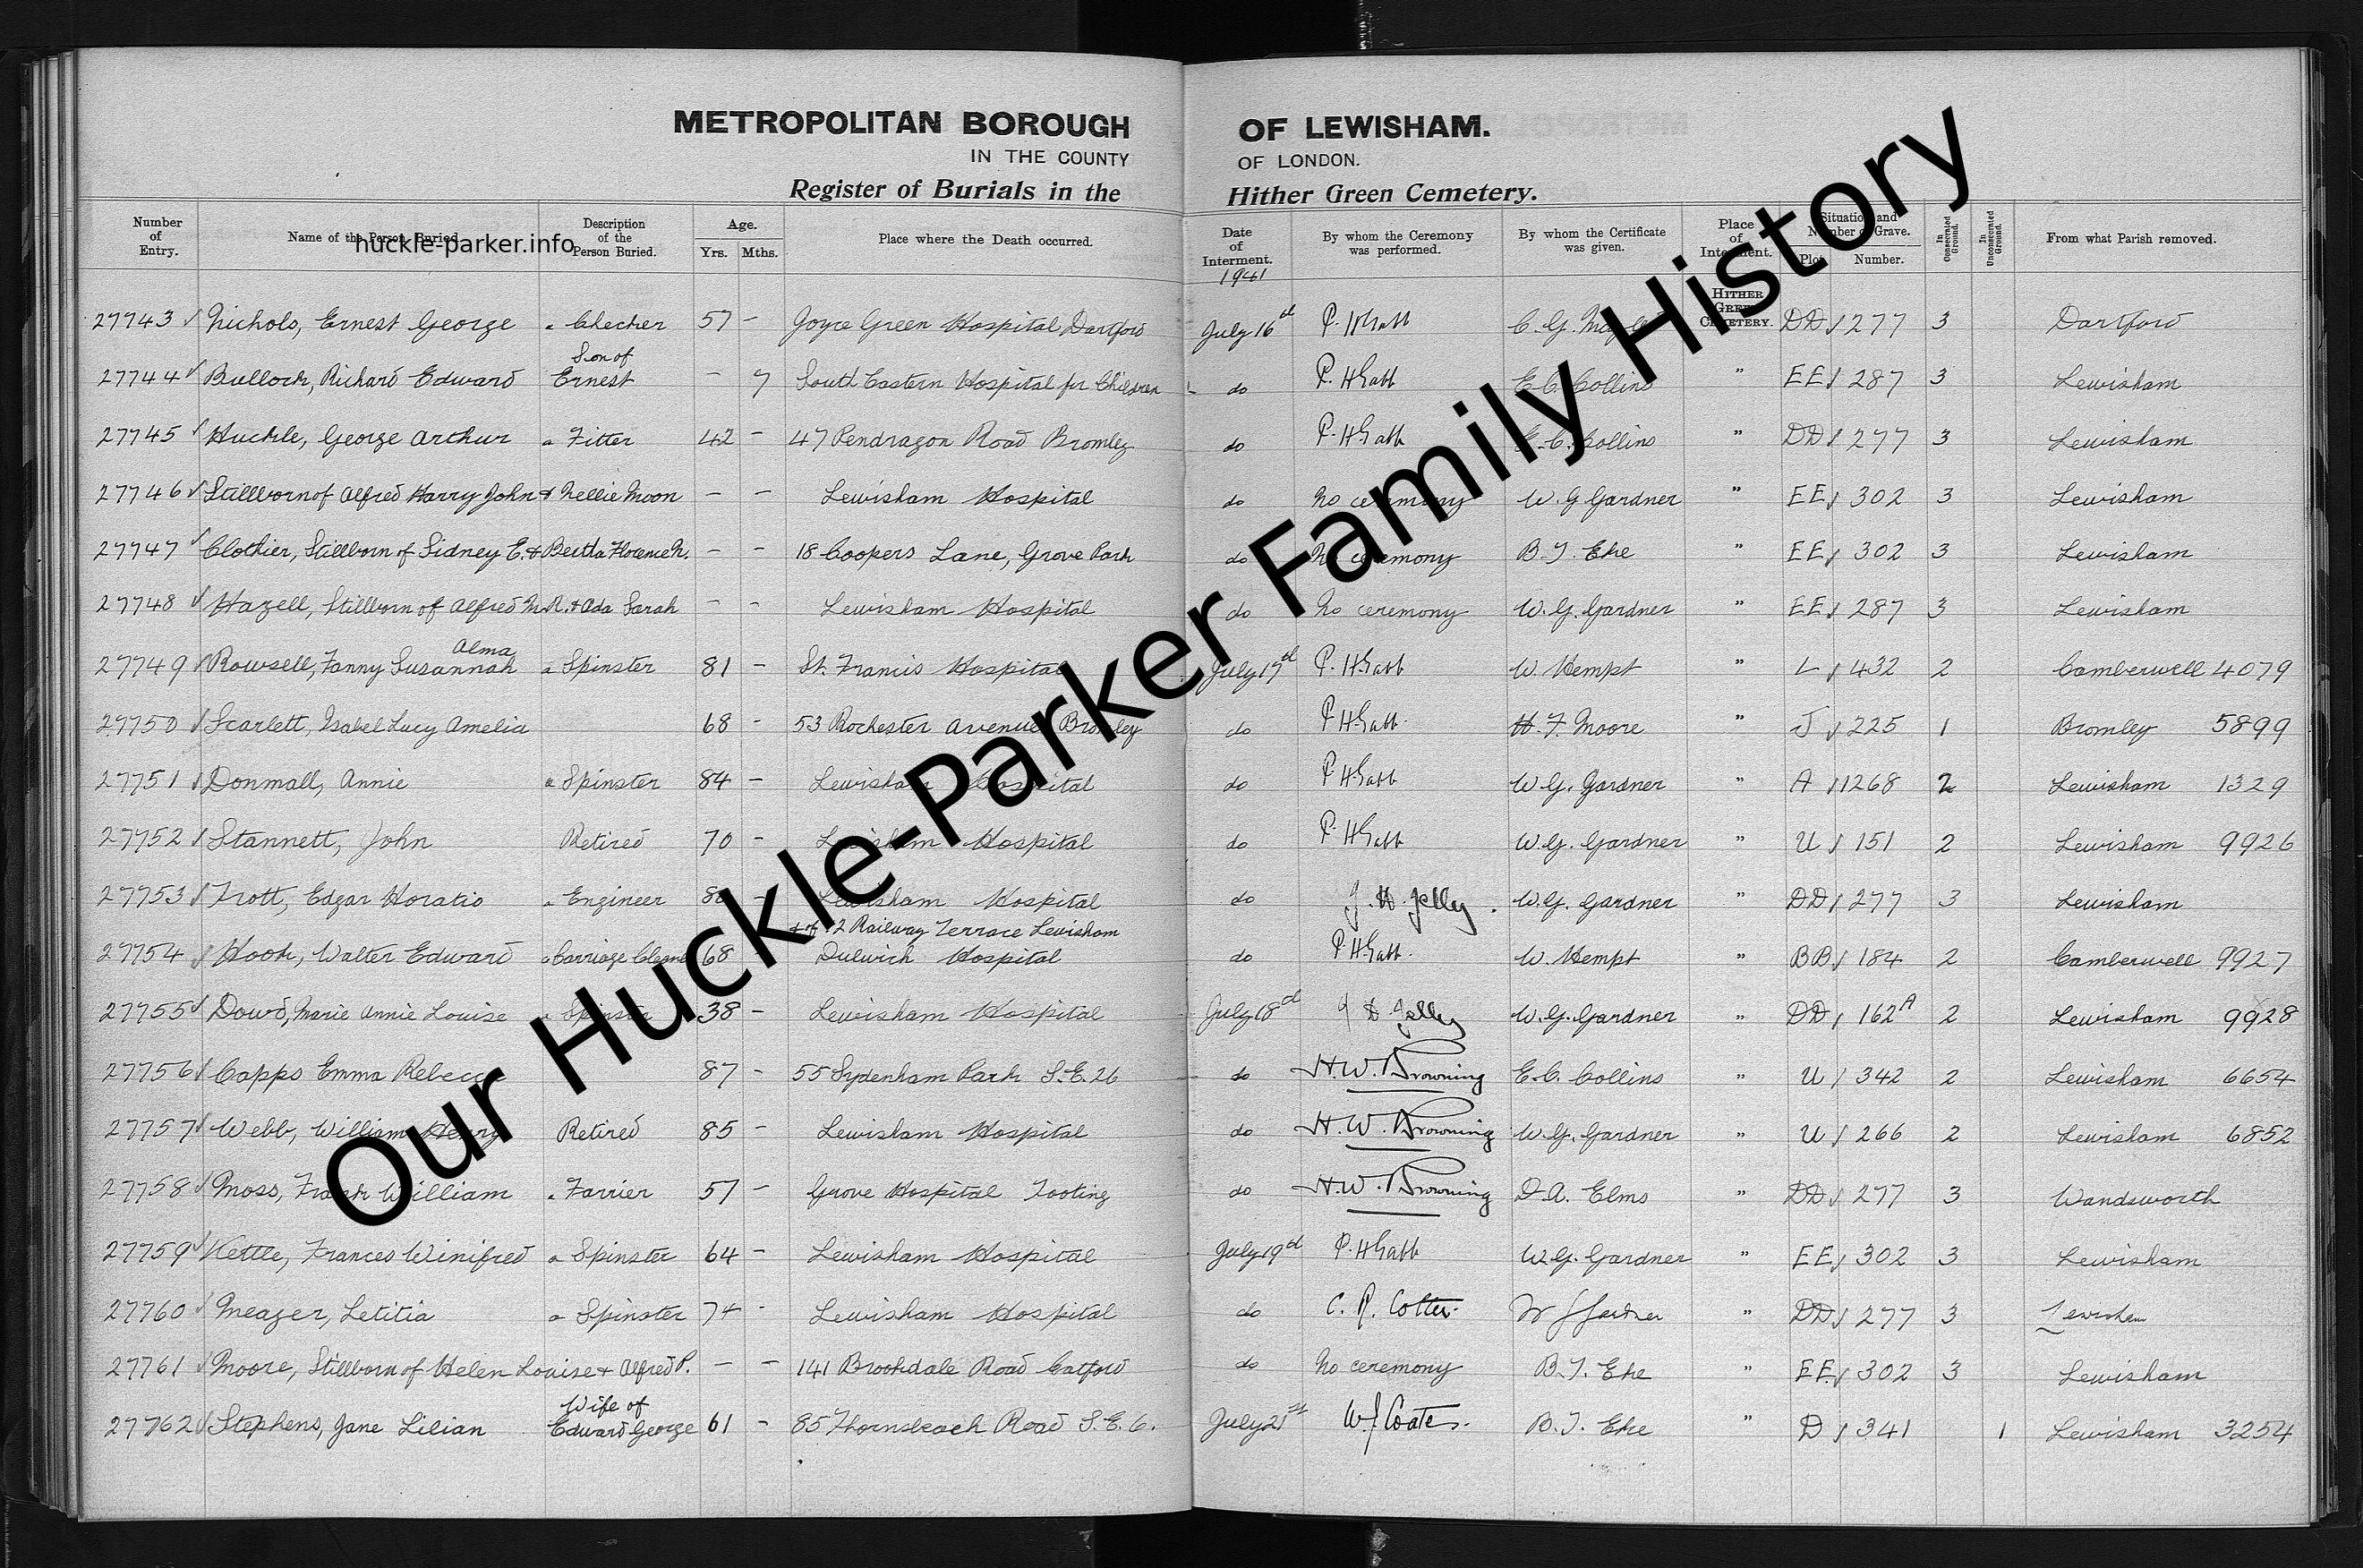 METROPOLITAN BOROUGH OF LEWISHAM.
IN THE COUNTY OF LONDON.
Register of Burials in the Hither Green Cemetery.
Number of Entry. Name of the Person Buried. Description of the Person Buried. Age. Yrs. Mths. Place where the Death occurred. Date of Interment. By whom the Ceremony was performed. By whom the Certificate was given. Place of Interment. Situation and Number of Grave. Plot Number. In Consecrated Ground. In Unconsecrated Ground. From what Parish removed.
huckle-parker.info
1941
HITHER GREEN CEMETERY.
27743 Nichols, Ernest George a Checker 57 - Joyce Green Hospital, Dartford July 16th P. H Gabb C. G. DD 277 3 Dartford
27744 Bullock, Richard Edward Son of Ernest - 7 South Eastern Hospital for Children do P. H Gabb E. C. Collins " EE 287 3 Lewisham
27745 Huckle, George Arthur a Fitter 42 - 47 Pendragon Road Bromley do P. H Gabb E. C. Collins " DD 277 3 Lewisham
27746 Stillborn of Alfred Harry John & Nellie Moon - - Lewisham Hospital do No ceremony W. G Gardner " EE 302 3 Lewisham
27747 Clothier, Stillborn of Sidney E. & Bertha Florence N. - - 18 Coopers Lane, Grove Park do No ceremony B. T. Eke " EE 302 3 Lewisham
27748 Hazell, Stillborn of Alfred & Ada Sarah - - Lewisham Hospital do No ceremony W. G. Gardner " EE 287 3 Lewisham
27749 Rowsell, Fanny Susannah Alma a Spinster 81 - St. Francis Hospital July 17th P. H Gabb W. Kempt " L 432 2 Camberwell 4079
27750 Scarlett, Isabel Lucy Amelia 68 - 53 Rochester Avenue Bromley do P H Gabb H. F. Moore " J 225 1 Bromley 5899
27751 Donmall, Annie a Spinster 84 - Lewisham Hospital do P H Gabb W. G. Gardner " A 1268 2 Lewisham 1329
27752 Stannett, John Retired 70 - Lewisham Hospital do P. H Gabb W. G. Gardner " U 151 2 Lewisham 9926
27753 Trott, Edgar Horatio a Engineer - Lewisham Hospital do Jelly. W. G. Gardner " DD 277 3 Lewisham
27754 Hook, Walter Edward a Carriage 68 & of 12 Railway Terrace Lewisham Dulwich Hospital do P H Gabb. W. Kempt " BB 184 2 Camberwell 9927
27755 Dowd, Marie Annie Louise a Spinster 38 - Lewisham Hospital July 18th Jelly W. G. Gardner " DD 162A 2 Lewisham 9928
27756 Capps Emma Rebecca 87 - 55 Sydenham Park S.E.26 do H. W. Browning E. C. Collins " U 342 2 Lewisham 6654
27757 Webb, William Henry Retired 85 - Lewisham Hospital do H. W. Browning W. G. Gardner " U 266 2 Lewisham 6852
27758 Moss, Frank William a Farrier 57 - Grove Hospital Tooting do H. W. Browning D. A. Elms " DD 277 3 Wandsworth
27759 Kettle, Frances Winifred a Spinster 64 - Lewisham Hospital July 19th P. H Gabb W. G. Gardner " EE 302 3 Lewisham
27760 Meager, Letitia a Spinster 74 - Lewisham Hospital do C. R. Cotter W G Gardner " DD 277 3 Lewisham
27761 Moore, Stillborn of Helen Louise & Alfred P. - - 141 Brookdale Road Catford do No ceremony B. T. Eke " EE 302 3 Lewisham
27762 Stephens, Jane Lilian Wife of Edward George 61 - 85 Thornsbeach Road S.E.6. July 21st W. J. Coates. B. T. Eke " D 341 1 Lewisham 3254
Our Huckle-Parker Family History